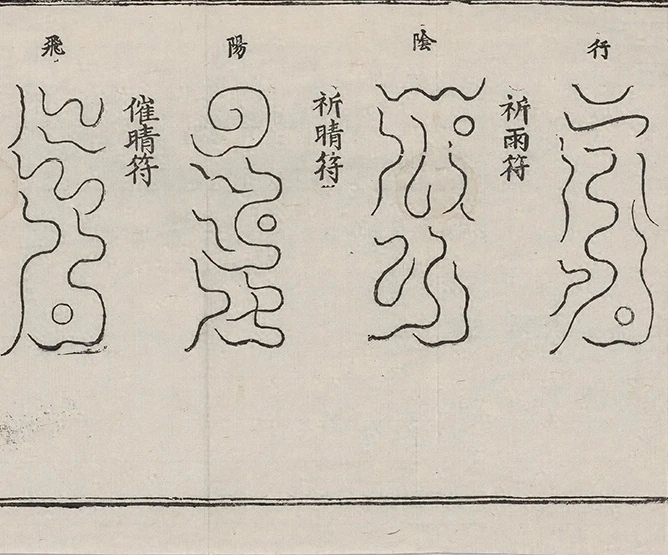 行
祈雨符
陰
祈晴符
陽
催晴符
飛